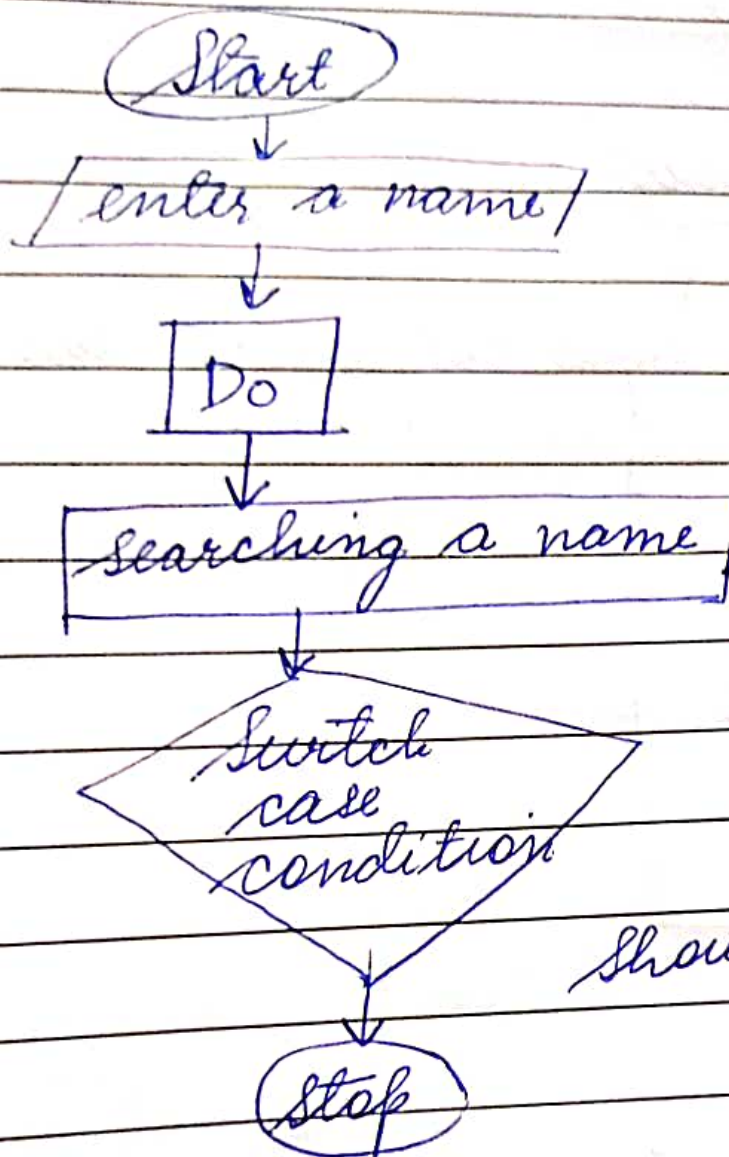 Start
enter a name
Do
searching a name
Switch
case
condition
Stop